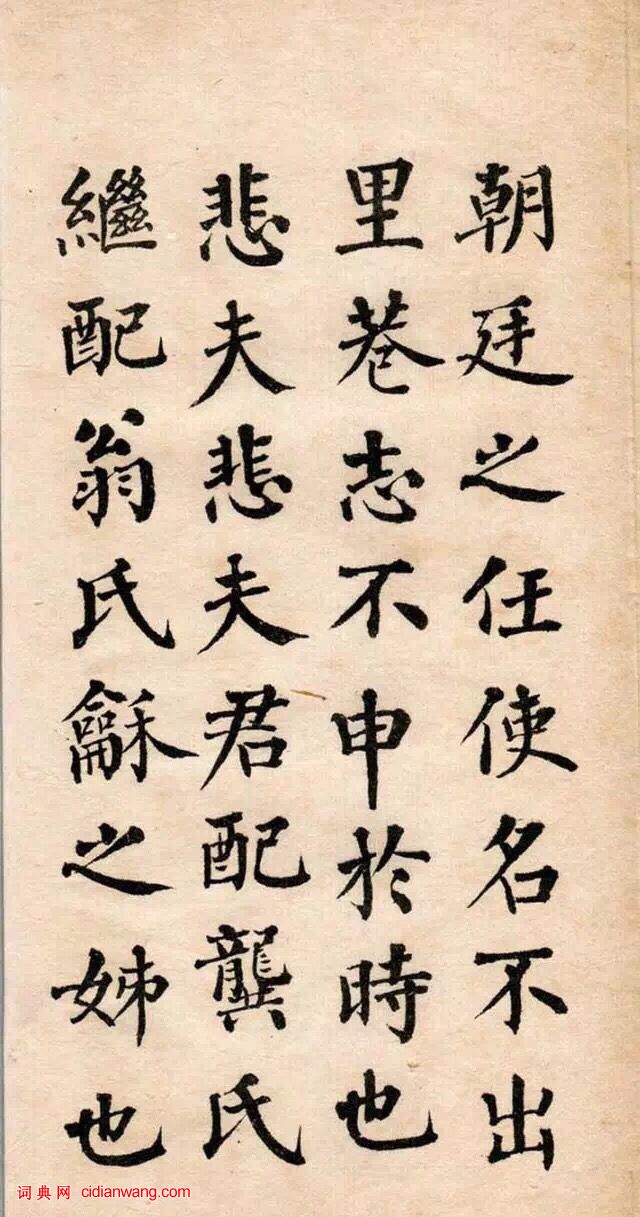 朝廷之任使名不出
里巷志不申於時也
悲夫悲夫君配龔氏
繼配翁氏龢之姊也
词典网 cidianwang.com